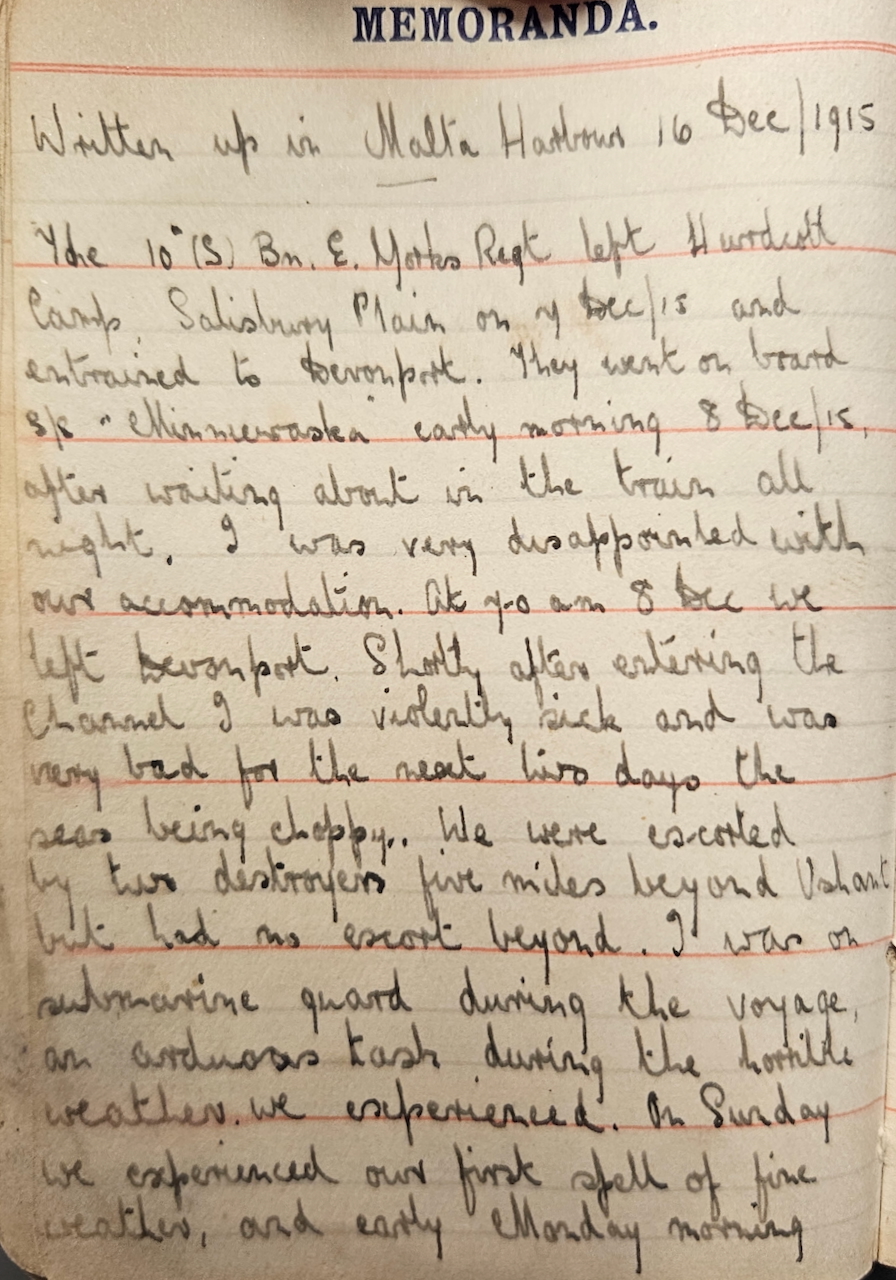 MEMORANDA.
Written up in Malta Harbour 16 Dec/1915
The 10th (S) Bn. E. Yorks Regt left Hurdcott
Camp, Salisbury Plain on 7 Dec/15 and
entrained to Devonport. They went on board
s/s "Minnewaska" early morning 8 Dec/15,
after waiting about in the train all
night. I was very disappointed with
our accommodation. At 7-0 am 8 Dec we
left Devonport. Shortly after entering the
Channel I was violently sick and was
very bad for the next two days the
seas being choppy.. We were escorted
by two destroyers five miles beyond Ushant
but had no escort beyond. I was on
submarine guard during the voyage,
an arduous task during the horrible
weather. we experienced. On Sunday
we experienced our first spell of fine
weather, and early Monday morning